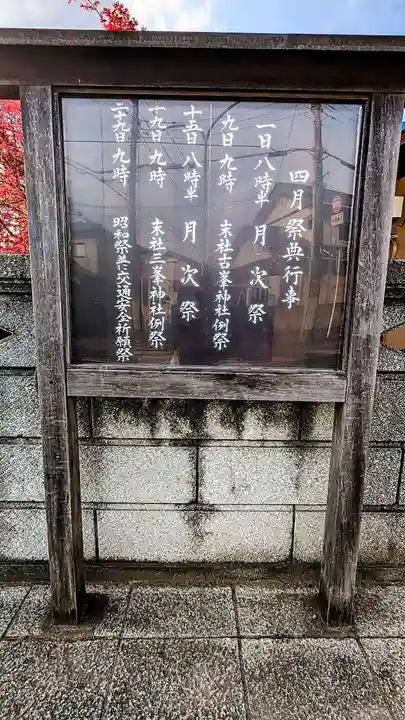 四月祭典行事
一日八時半 月次祭
九日九時 末社古峯神社例祭
十五日八時半 月次祭
十九日九時 末社三峯神社例祭
二十九日九時 昭和祭並に交通安全祈願祭